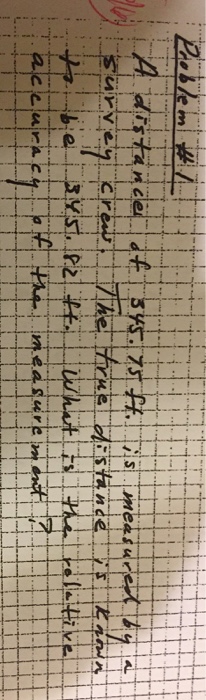 Problem #1
A distance of 345.75 ft. is measured by a
survey crew. The true distance is known
to be 345.82 ft. What is the relative
accuracy of the measurement?